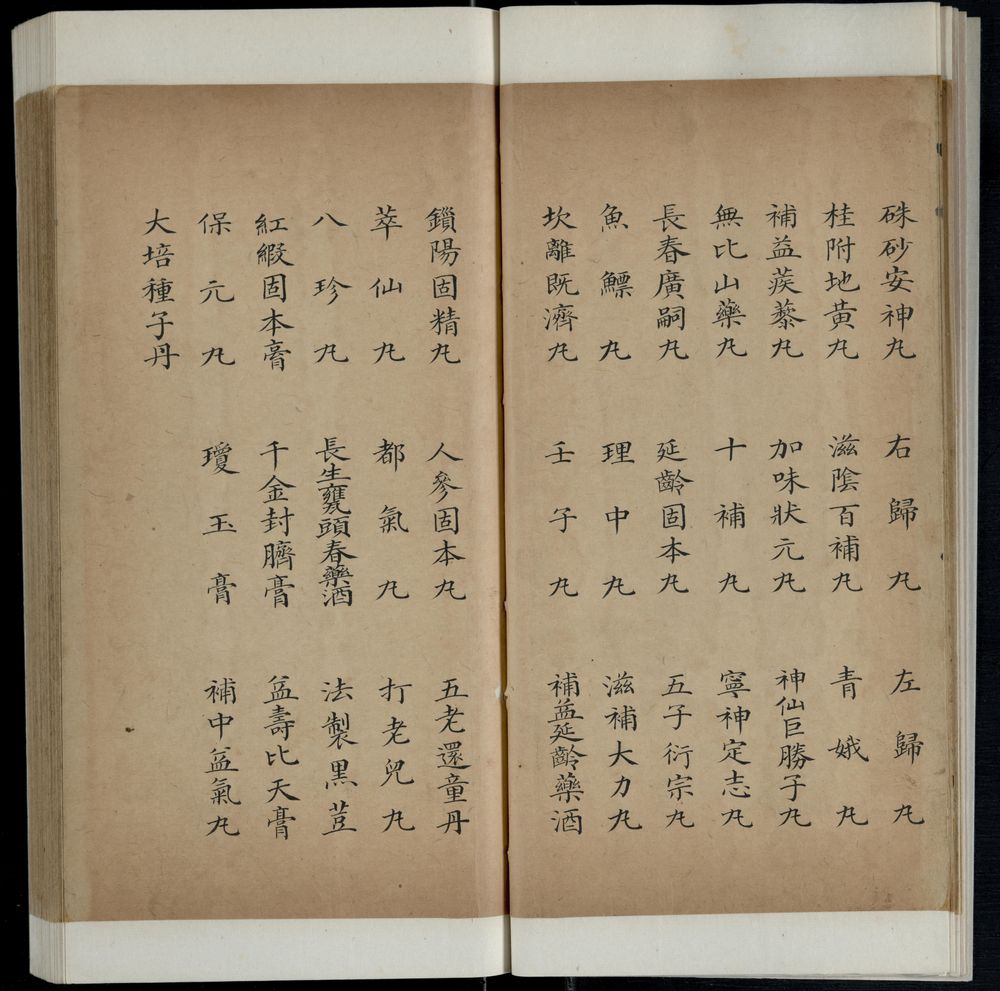 硃砂安神丸 右歸丸 左歸丸
桂附地黃丸 滋陰百補丸 青娥丸
補益蒺藜丸 加味狀元丸 神仙巨勝子丸
無比山藥丸 十補丸 寧神定志丸
長春廣嗣丸 延齡固本丸 五子衍宗丸
魚鰾丸 理中丸 滋補大力丸
坎離既濟丸 壬子丸 補益延齡藥酒
鎖陽固精丸 人參固本丸 五老還童丹
萃仙丸 都氣丸 打老兒丸
八珍丸 長生甕頭春藥酒 法製黑荳
紅緞固本膏 千金封臍膏 益壽比天膏
保元丸 瓊玉膏 補中益氣丸
大培種子丹